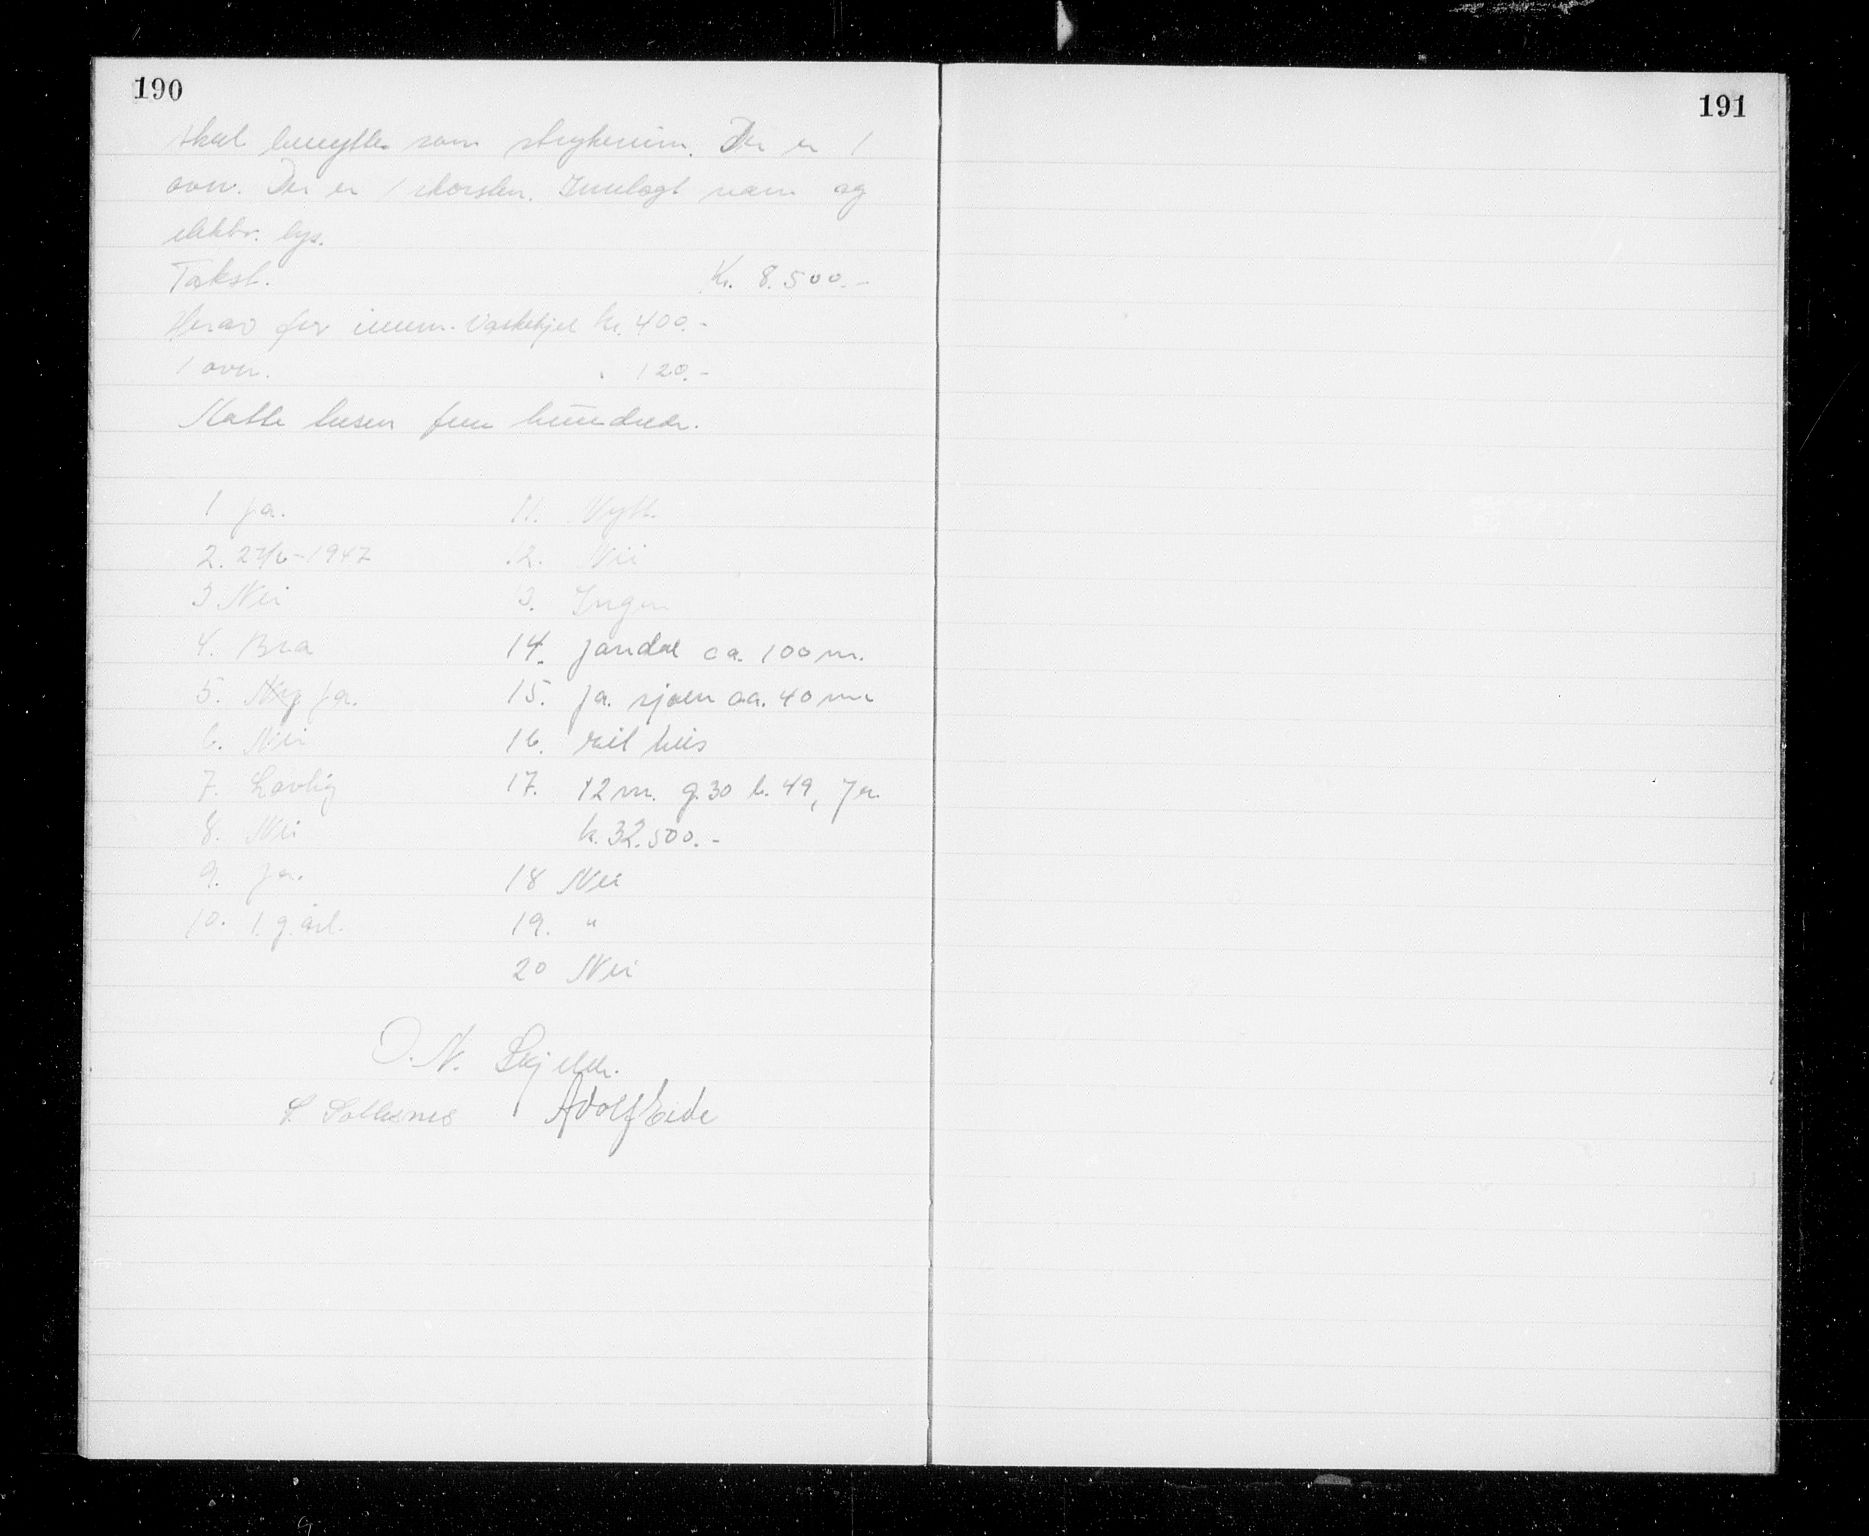 190
skal benyttes som strykerum. Der er 1
ovn. Der er 1 skorsten. Innlagt vann og
elektr. lys.
Takst. Kr. 8.500.-
Herav for innm. vaskekjel kr. 400.-
1 ovn. " 120.-
Aatte tusen fem hundrede.
1 Ja. 11. Nytt.
2. 27/6-1947 12. Nei
3 Nei 13. Ingen
4. Bra 14. Jondal ca. 100 m.
5. Ja. 15. Ja. sjøen ca. 40 m
6. Nei 16.
7. Lovlig 17. 12 m. g. 30 b. 49, Ja.
8. Nei k. 32.500.-
9. Ja. 18 Nei
10. 1 g. årl. 19. "
20 Nei
O. N. Skjelde.
S. Sollesnes Adolf Eide
191